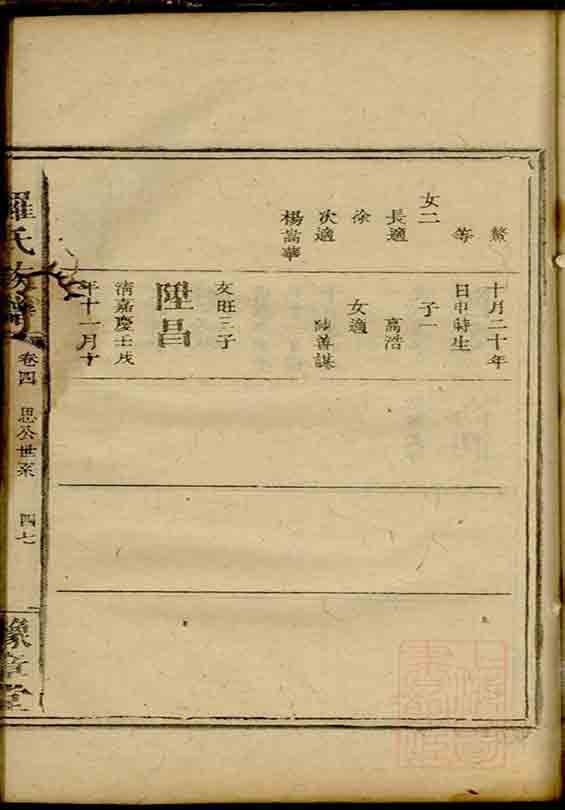 鰲
等
女二
長適
徐
次適
楊嵩華
十月二十年
日申時生
子一
高浩
女適
陳善謀
友旺三子
陞昌
清嘉慶壬戌
年十一月十
羅氏族譜
卷四
思公世系
四七
豫章堂